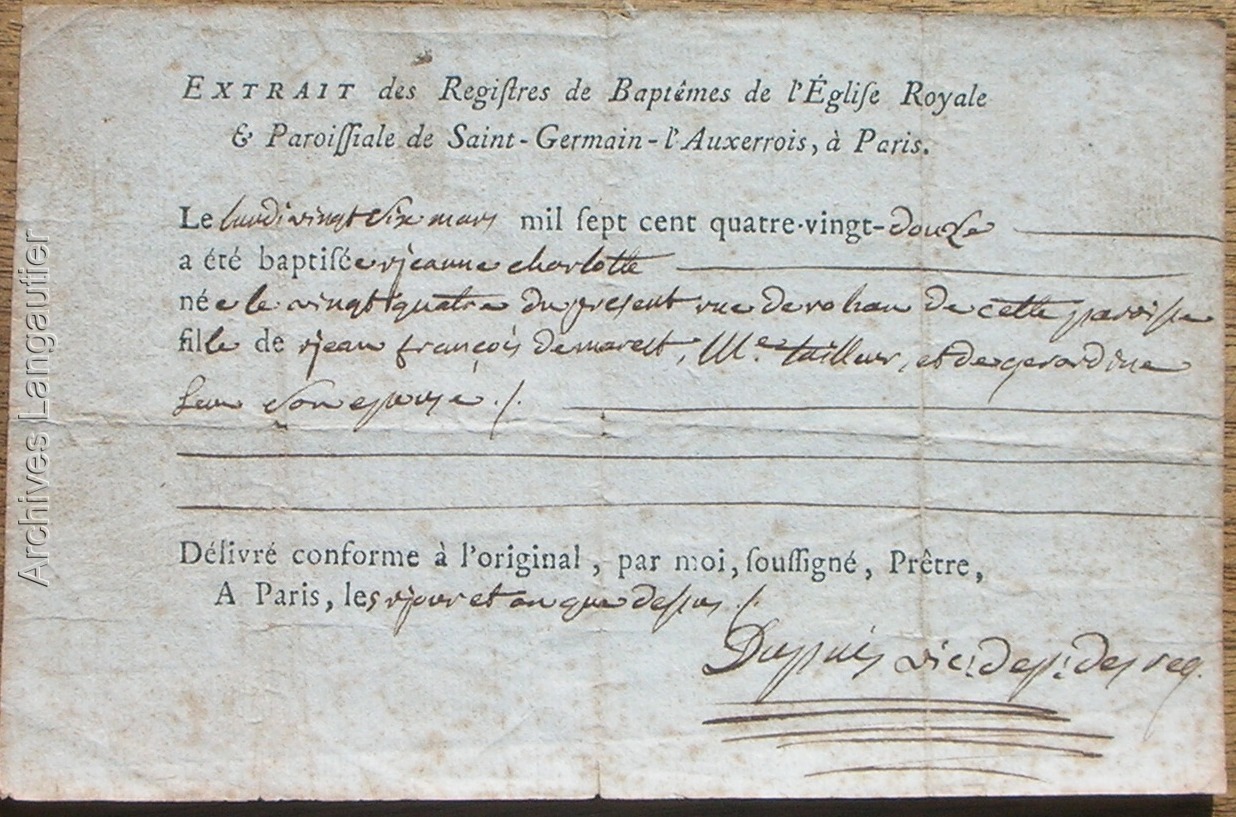 EXTRAIT des Regiſtres de Baptêmes de l'Égliſe Royale
& Paroiſſiale de Saint-Germain-l'Auxerrois, à Paris.
Le lundi vingt Six mars mil ſept cent quatre-vingt-douze
a été baptiſée jeanne charlotte
née le vingt quatre du present rue de rohan de cette paroisse
fille de jean françois demarest, Me. tailleur, et de gerardine
son epouse ./.
Délivré conforme à l'original, par moi, ſouſſigné, Prêtre,
A Paris, les jour et an que dessus ./.
vic. des
Archives Langautier